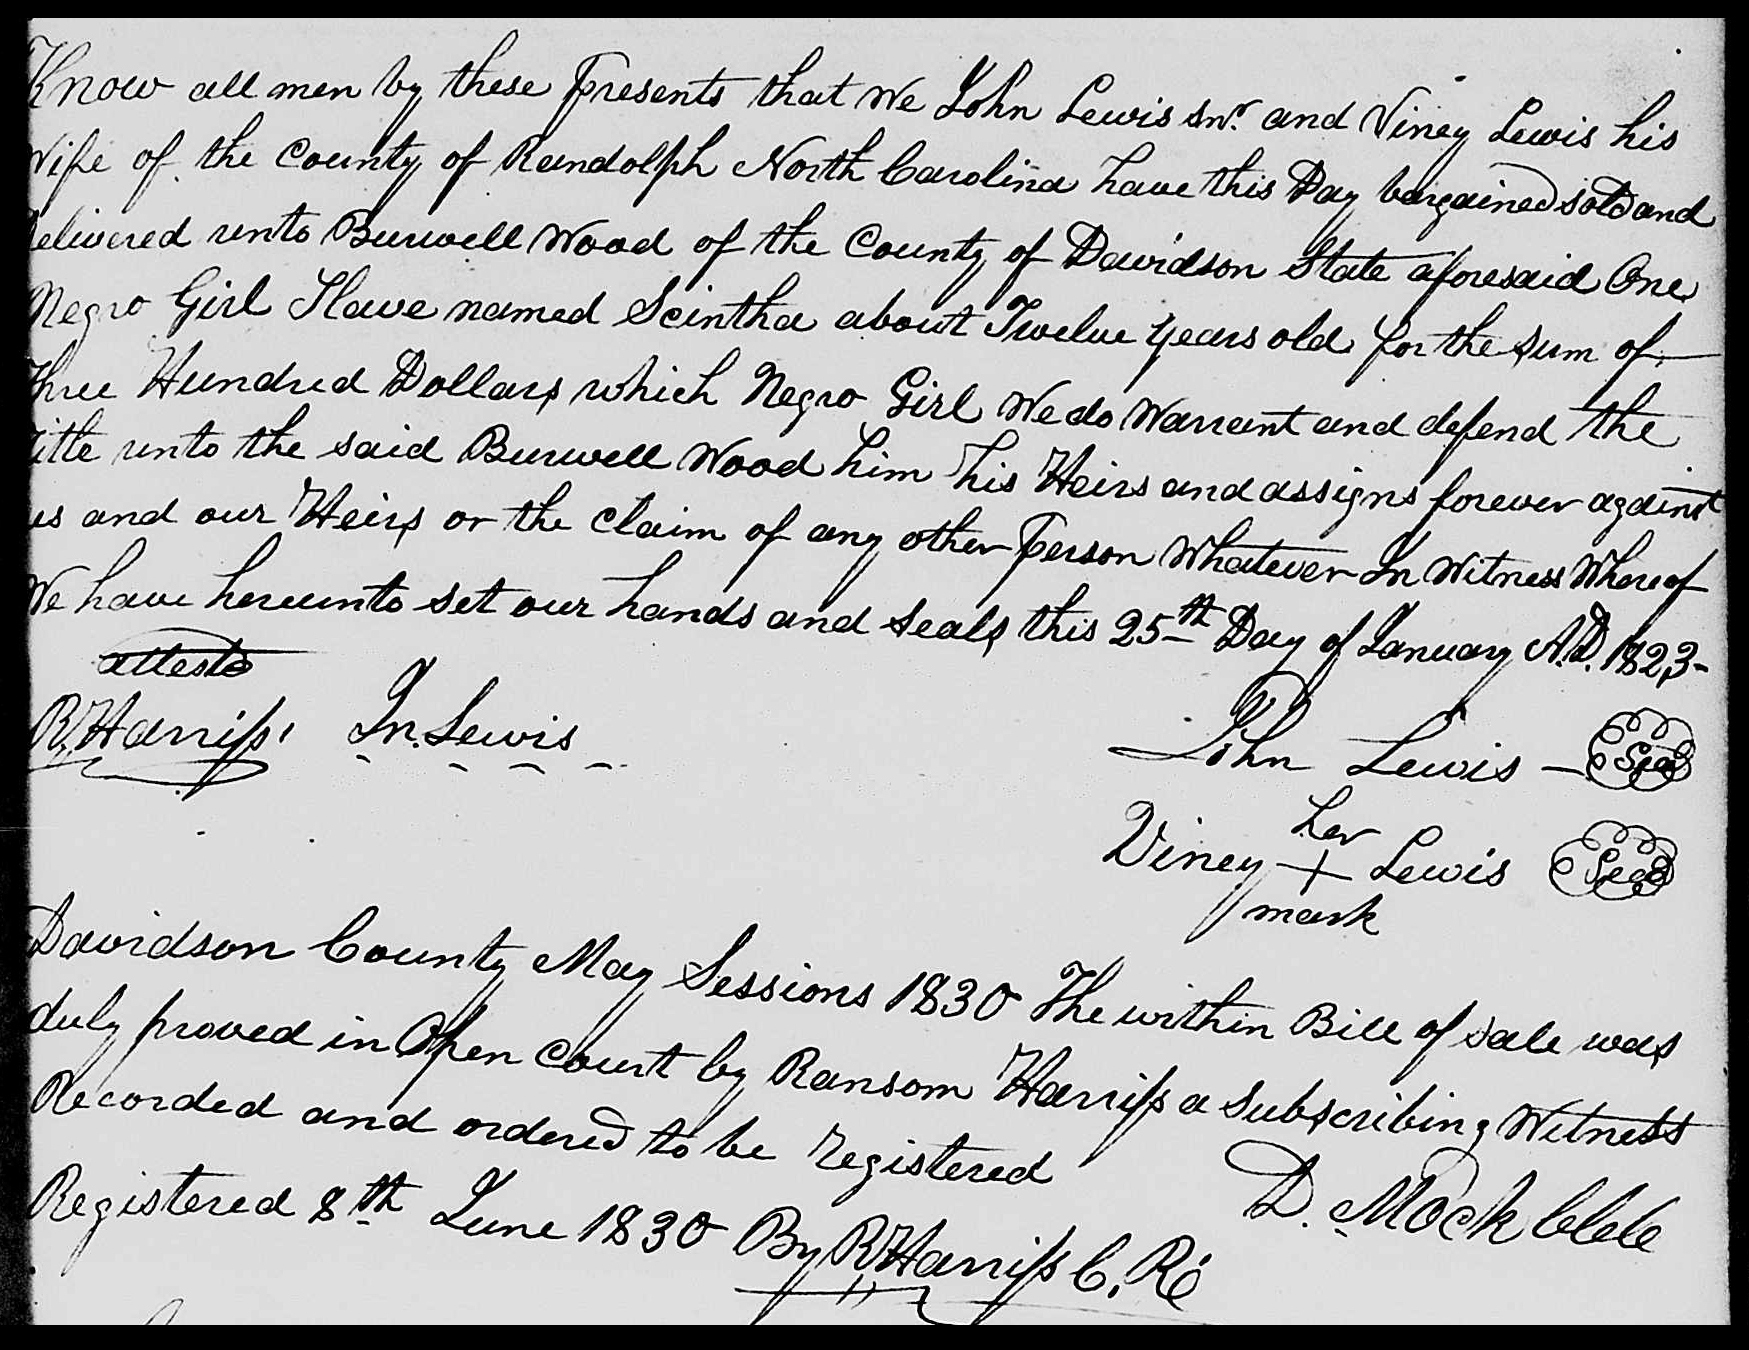 Know all men by these Presents that We John Lewis snr. and Viney Lewis his
Wife of the County of Randolph North Carolina have this Day bargained sold and
delivered unto Burwell Wood of the County of Davidson State aforesaid One
Negro Girl Slave named Scintha about Twelve years old for the sum of
Three Hundred Dollars which Negro Girl We do Warrant and defend the
title unto the said Burwell Wood him his Heirs and assigns forever against
us and our Heirs or the claim of any other Person Whatever In Witness Whereof
We have hereunto set our hands and seals this 25th Day of January A.D. 1823-
attest
R. Harriss, Jn. Lewis
John Lewis - Seal
her
Viney + Lewis Seal
mark
Davidson County May Sessions 1830 The within Bill of sale was
duly proved in Open Court by Ransom Harriss a Subscribing Witness
Recorded and ordered to be registered
D. Mock Clk
Registered 8th June 1830 By R Harriss C. R